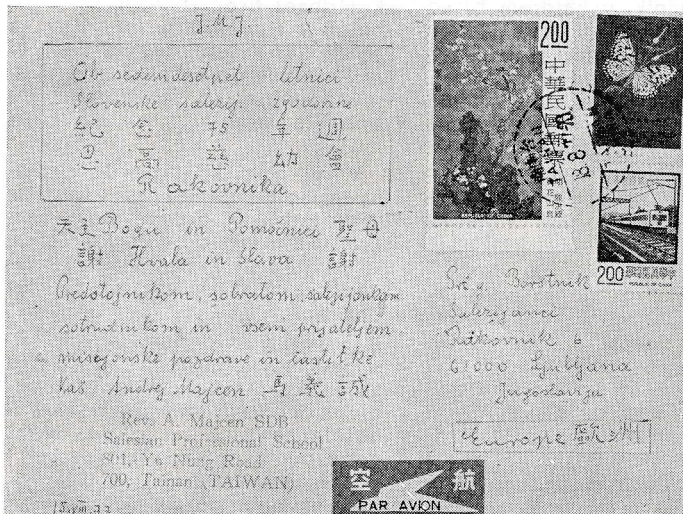 J.M.J
Ob sedemdesetpet letnici
Slovenske salezij. zgodovine
紀念 75 年週
恩高慈幼會
Rakovnika
天主 Bogu in Pomočnici 聖母
謝 Hvala in slava 謝
Predstojnikom, sobratom, salezijankam
sotrudnikom in vsem prijateljem
misijonske pozdrave in čestitke
Vaš Andrej Majcen 馬義誠
Rev. A. Majcen SDB
Salesian Professional School
801, Yu Nung Road
700, Tainan TAIWAN)
2.00
中華民國郵票
REPUBLIC OF CHINA
2.00
REPUBLIC OF CHINA
Borštnik
Salezijanci
Rakovnik 6
61000 Ljubljana
Jugoslavija
Europe 歐洲
空航
PAR AVION